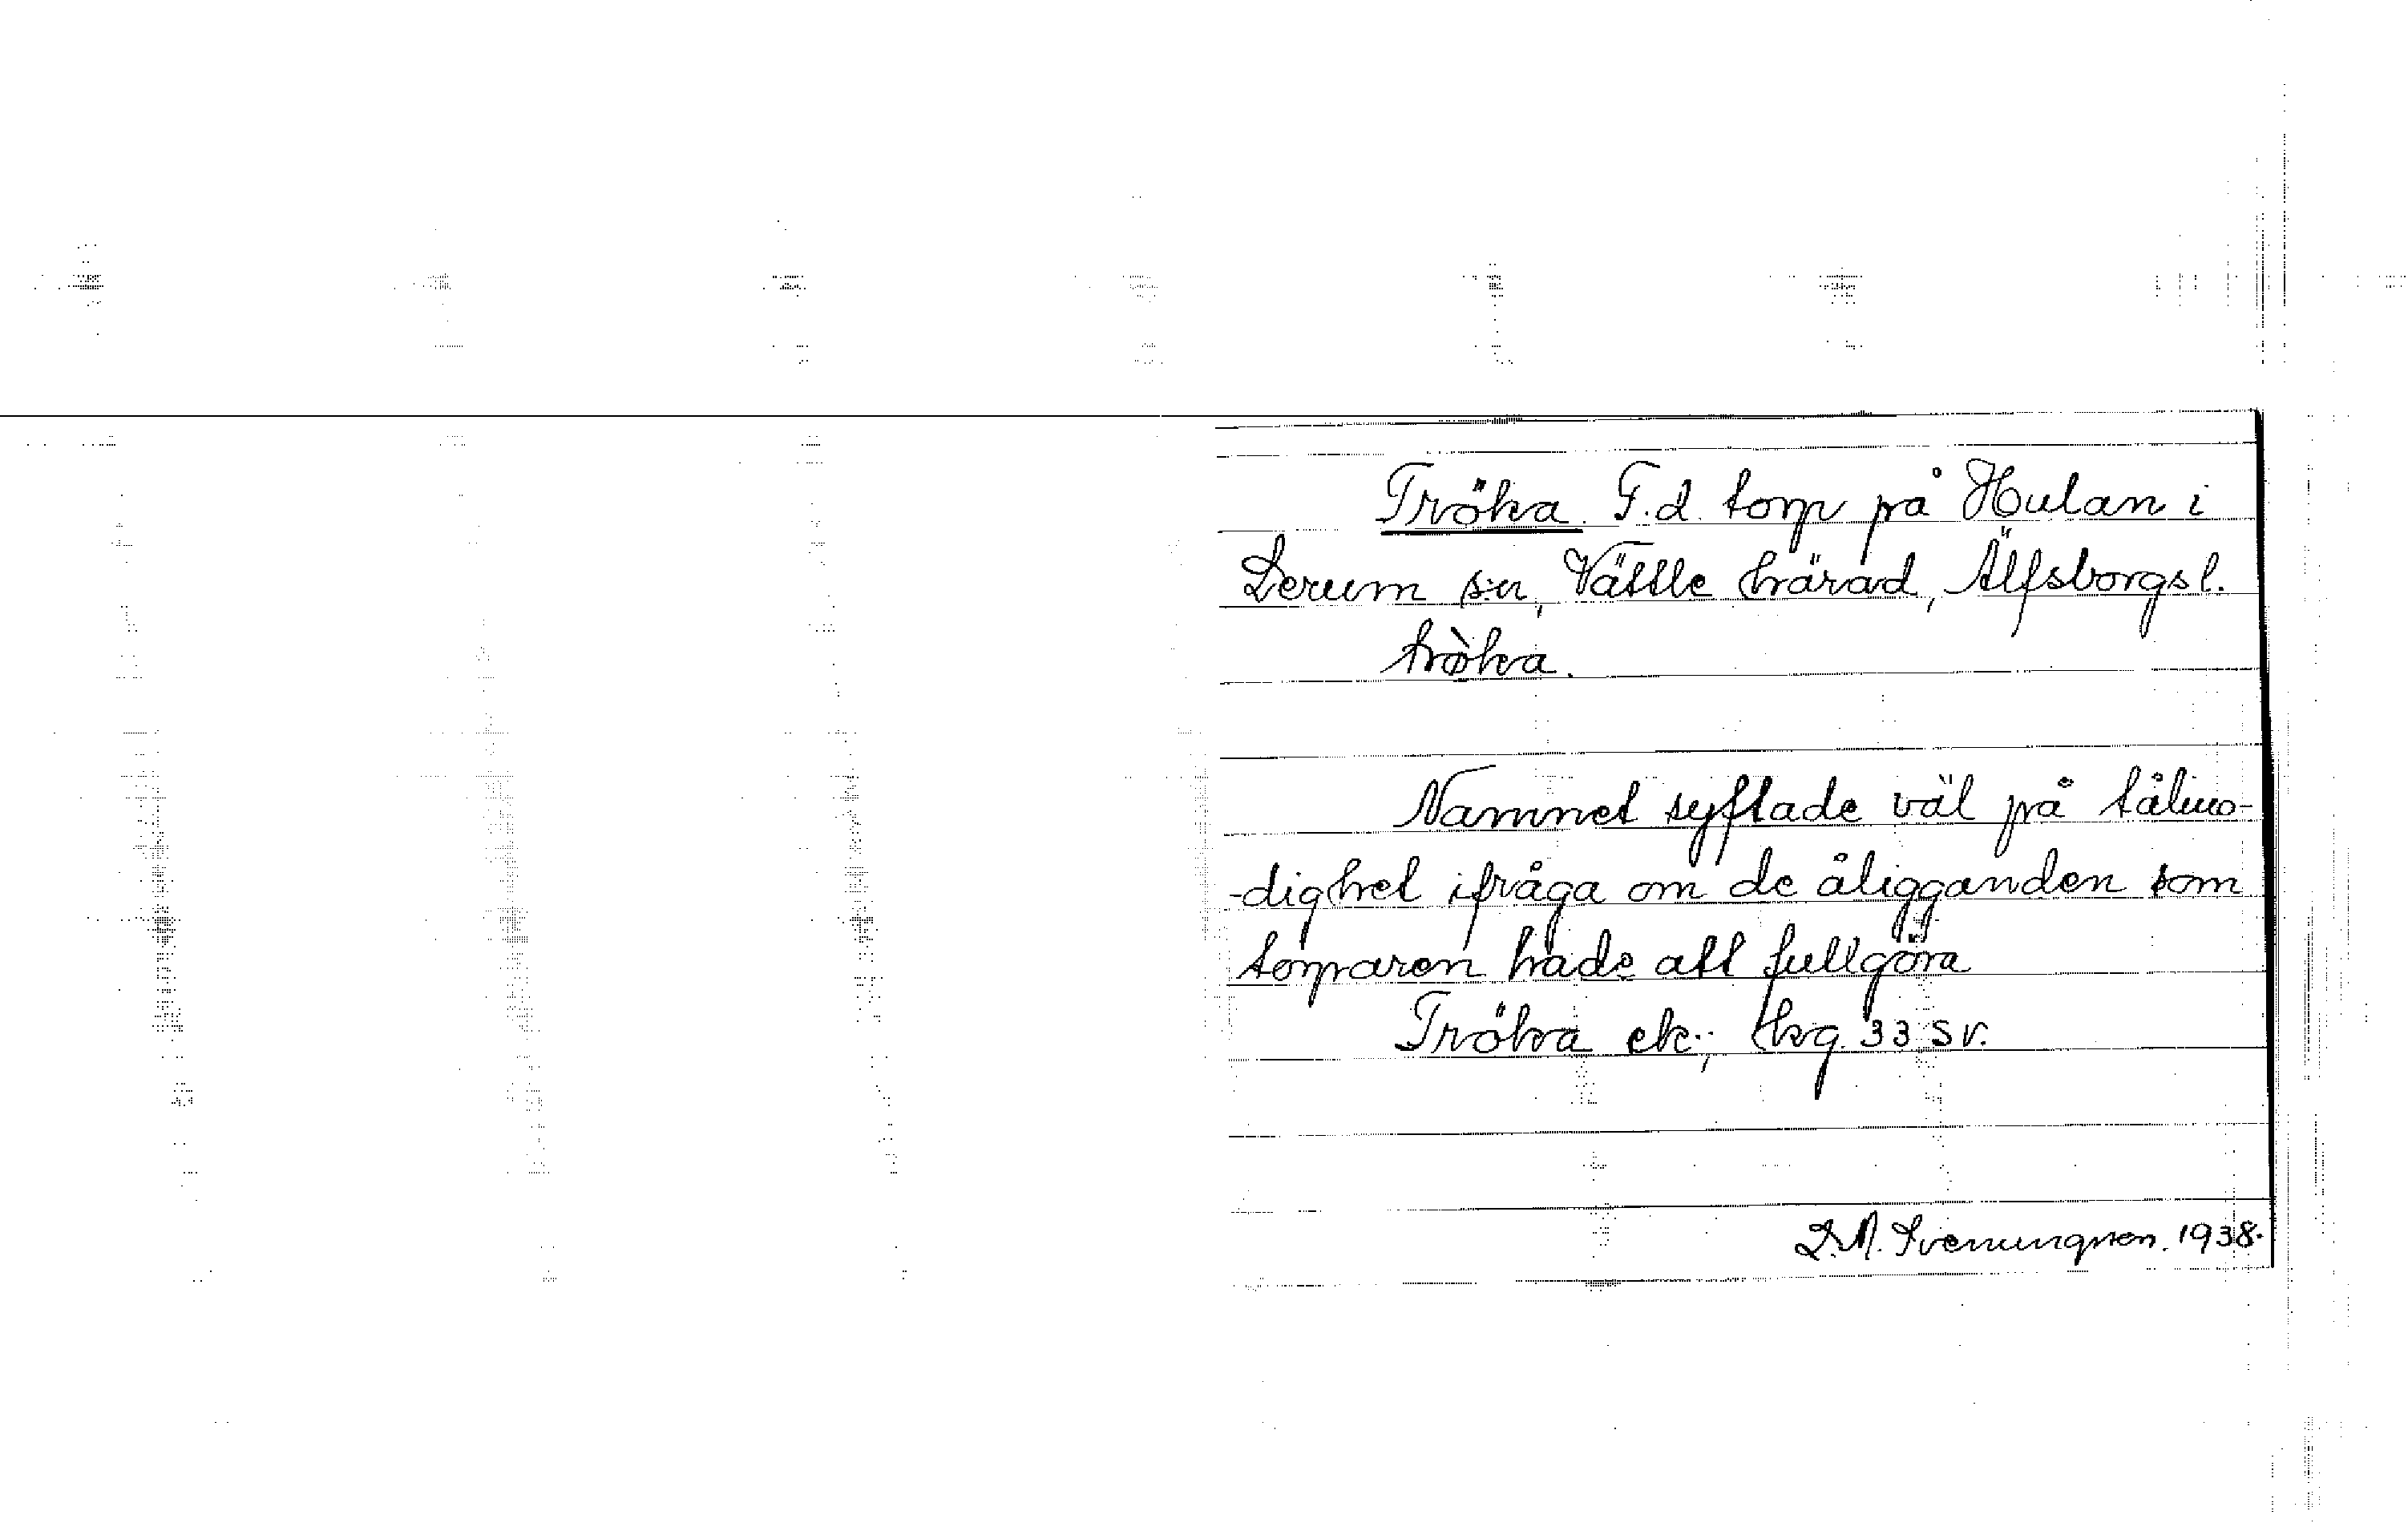 Tröka. F.d. torp på Hulan i
Lerum sn, Vättle härad, Älfsborgs l.
trø̀ka.
Namnet syftade väl på tålmo-
-dighet ifråga om de åligganden som
torparen hade att fullgöra
Tröka ek.; hg. 33 SV.
L.A. Svenungsson. 1938.